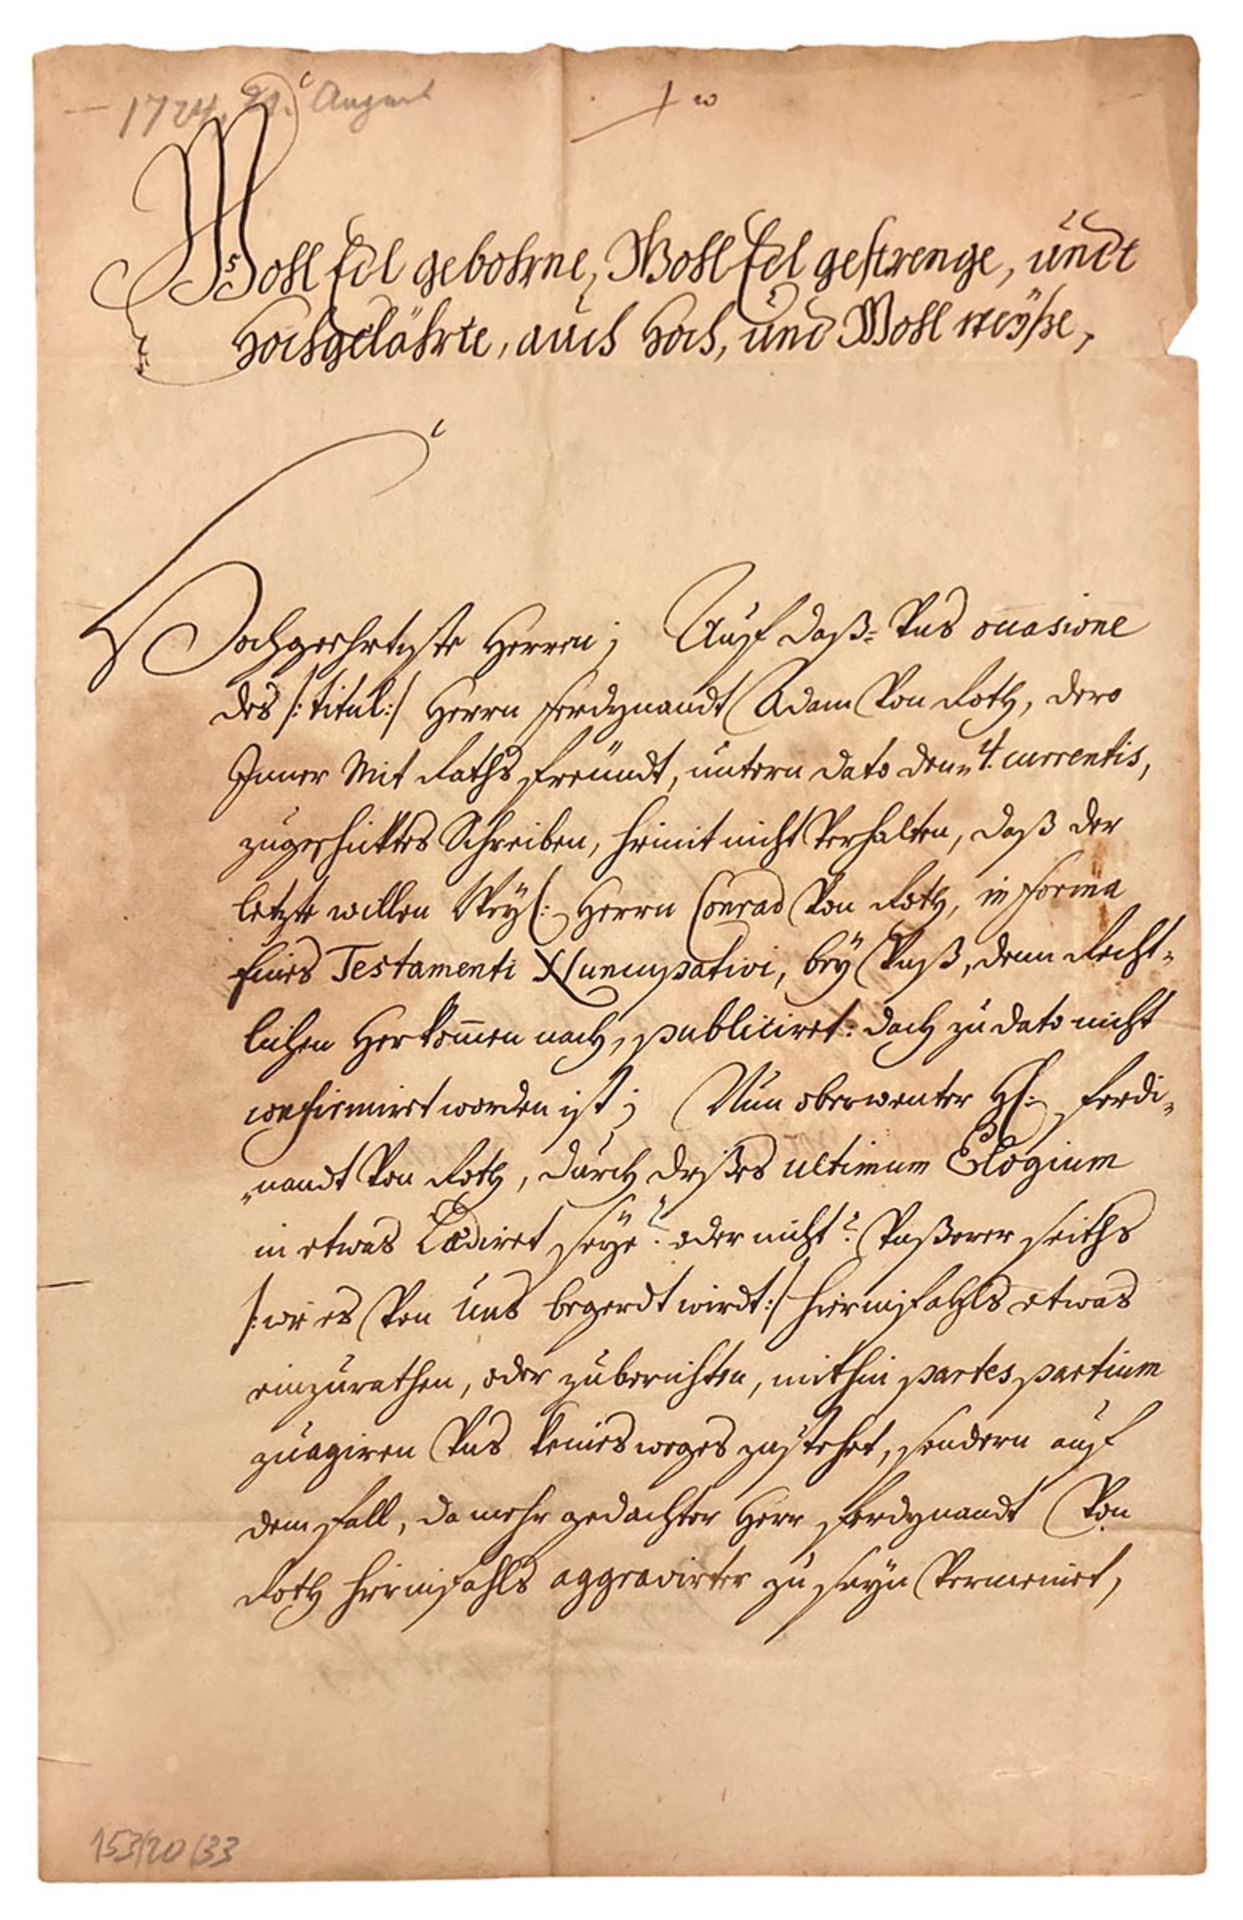 1724, 21. August
Wohl Edl gebohrne, Wohl Edl gestrenge, undt
Hochgelährte, auch Hoch, und Wohl weyße,
Hochgeehrtiste Herren; Auff daß Uns occasione
des /: titul :/ Herrn Ferdynandt Adam Von Roth, dero
Inner Mit Raths Freündt, untern dato den 4. currentis,
zugeschicktes Schreiben, hiemit nicht Verhalten, daß der
letzte willen Weyl: Herrn Conrad Von Roth, in Forma
Eines Testamenti Nuncupativi, bey Unß, denn Recht-
lichen Herkom̄en nach, publiciret: doch zu dato nicht
confirmiret worden ist; Nun oberwenter H: Ferdi-
nandt Von Roth, durch dißes ultimum Elogium
in etwas Lædiret seÿe? oder nicht? Unßerer seiths
/: wie es Von Uns begerdt wirdt :/ hierinfahls etwas
einzurathen, oder zuberichten, mithin partes partium
zuagiren Uns keines weges zustehet, sondern auf
dem fall, da mehr gedachter Herr Ferdynandt Von
Roth hierinfahls aggravirter zu seyn Vermeinet,
153/20/33